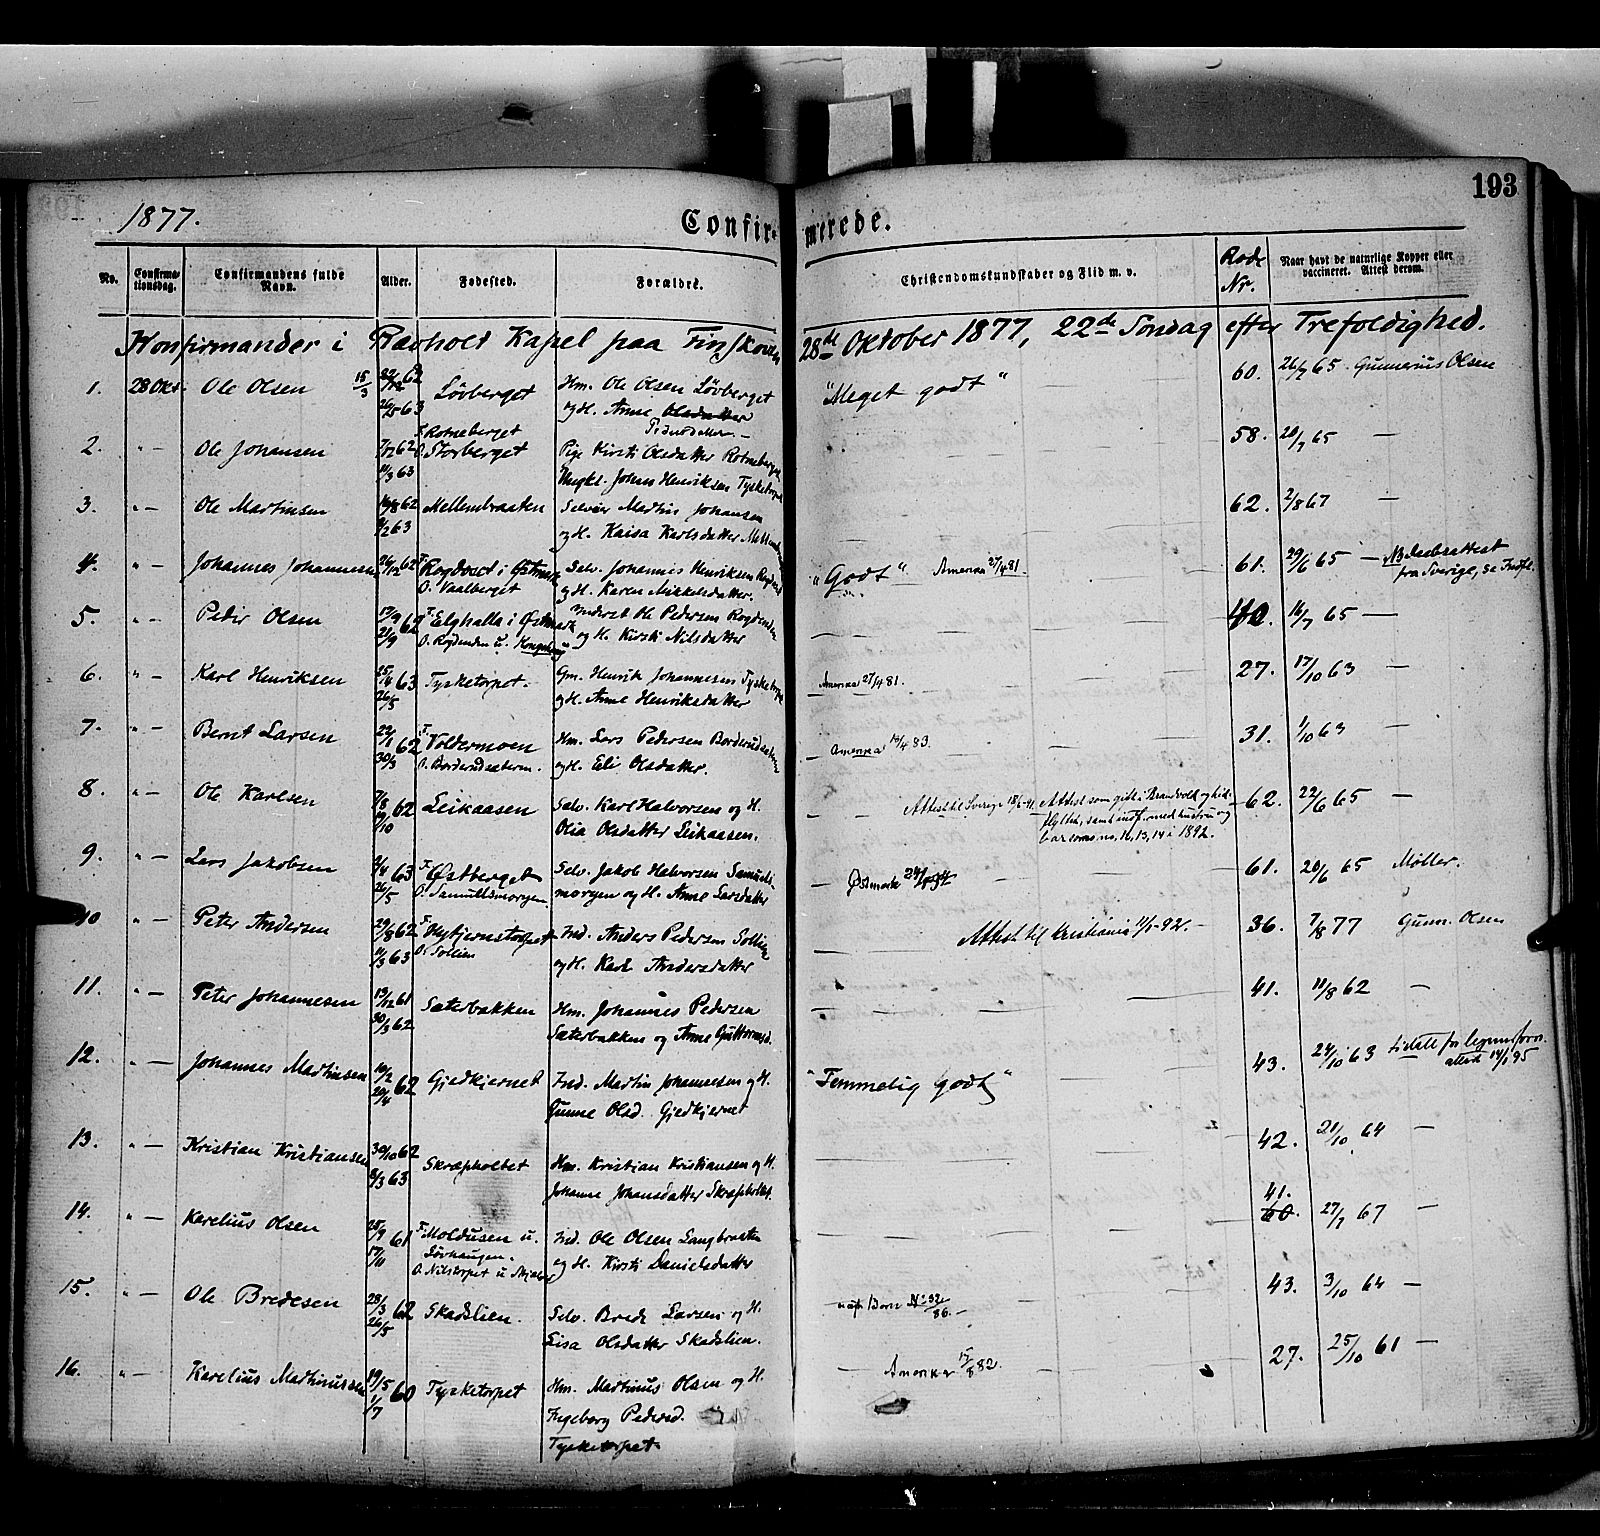 193
1877. Confirmerede.
No. Confirmationsdag. Confirmandens fulde Navn. Alder. Fødested. Forældre. Christendomskundskaber og Flid m. v. Rode Nr. Naar havt de naturlige Kopper eller vaccineret. Attest derom.
Konfirmander i Ravholt Kapel paa Finskoven 28de Oktober 1877, 22de Søndag efter Trefoldighed.
1. 28 Okt. Ole Olsen 15/3 22/12 62 Løvberget Hm. Ole Olsen Løvberget "Meget godt" 60. 26/7 65 Gunnerius Olsen
26/5 63 og H. Anne Olsdatter
Pedersdatter.
2. " — Ole Johansen 7/12 62 F. Rotneberget Pige Kirsti Olsdatter Rotneberget 58. 20/7 65 —
11/3 63 O. Storberget Ungk. Johan Henriksen Tysketorpet
3. " — Ole Martinsen 16/8 62 Mellembraaten Selveier Martin Johansen 62. 2/8 67 —
8/2 63 og H. Kaisa Karlsdatter
4. " — Johannes Johannesen 26/12 62 F. Rogdvael i Østmark Selv. Johannes Henriksen "Godt" Amerika 27/4 81. 61. 29/6 65 — NB daabsattest
O. Vaalberget og H. Karen Mikkelsdatter. fra Sverige, se Indfl.
5. " — Peder Olsen 17/9 62 F. Elghalla i Østmark Inderst Ole Pedersen Rogdenden 40. 16/7 65 —
21/9 O. Rogdenden u. Kongsberg og H. Kirsti Nilsdatter
6. " — Karl Henriksen 25/4 63 Tysketorpet. Gm. Henrik Johannesen Tysketorpet Amerika 27/4 81. 27. 17/10 63 —
26/5 og H. Anne Henriksdatter
7. " — Bernt Larsen 22/1 62 F. Voldermoen Hm. Lars Pedersen Borderudsæteren Amerika 13/4 83. 31. 1/10 63 —
30/3 O. Borderudsæteren. og H. Eli Olsdatter.
8. " — Ole Karlsen 7/8 62 Leikaasen Selv. Karl Halvorsen og H. Attest til Sverige Attest som gift i Brandvold 62. 22/6 65 —
19/10 Olia Olsdatter Leikaasen. samt indf. med hustru og
barn no. 11, 13, 14 i 1892.
9. " — Lars Jakobsen 2/4 63 F. Østberget Selv. Jakob Halvorsen Samuels- — Østmark 61. 20/6 65 Møller.
26/5 O. Samuelsmorgen. morgen og H. Anne Larsdatter
10 " — Peter Andersen 29/8 62 F. Ind. Anders Pedersen Sollien Attest til Kristiania 11/1-92. — 36. 7/8 77 Gunn. Olsen
63 O. Sollien og H. Kari Andersdatter
11. " — Peter Johannesen 19/12 61 Sæterbakken Hm. Johannes Pedersen 41. 11/8 62 —
30/3 62 Sæterbakken og Anne Guttormsd.
12. " — Johannes Martinsen 19/2 62 Gjedkjernet Ind. Martin Johannesen og H. "Temmelig Godt" 43. 24/10 63 udstedt
20/4 Gunne Olsd. Gjedkjernet attest 14/1 95
13. " — Kristian Kristiansen 30/10 62 Skræpholtet Hm. Kristian Kristiansen og H. 42. 21/10 64 —
8/3 63 Johanne Johansdatter Skræpholtet.
14. " — Karelius Olsen 25/9 61 F. Moldusen u. Ind. Ole Olsen Langbraaten 41. 60. 27/7 67 —
17/11 Løvhaugen. og H. Kirsti Danielsdatter
O. Nilstorpet u
15. " — Ole Bredesen 28/3 62 Skadslien. Selv. Brede Larsen og H. uægte Barn No 32/86. — 43. 3/10 64 —
26/5 Lisa Olsdatter Skadslien.
16. " — Karelius Martinussen 19/5 60 Tysketorpet Hm. Martinus Olsen og H. — Amerika 82. 27. 25/10 61 —
1/7 Ingeborg Pedersd.
Tysketorpet